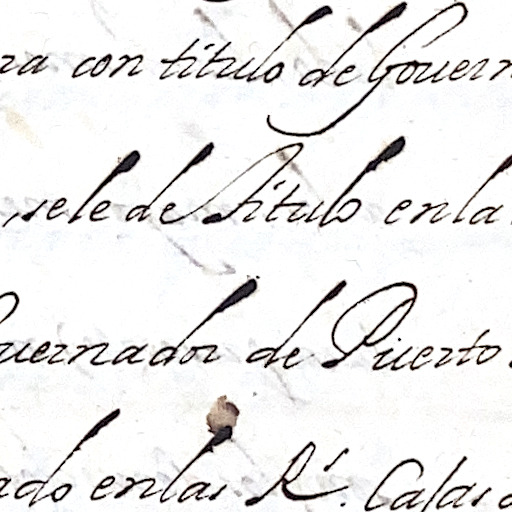 ra con titulo de Gouern
, sele de titulo en la
ouernador de Puerto
ado en las R.s Casas